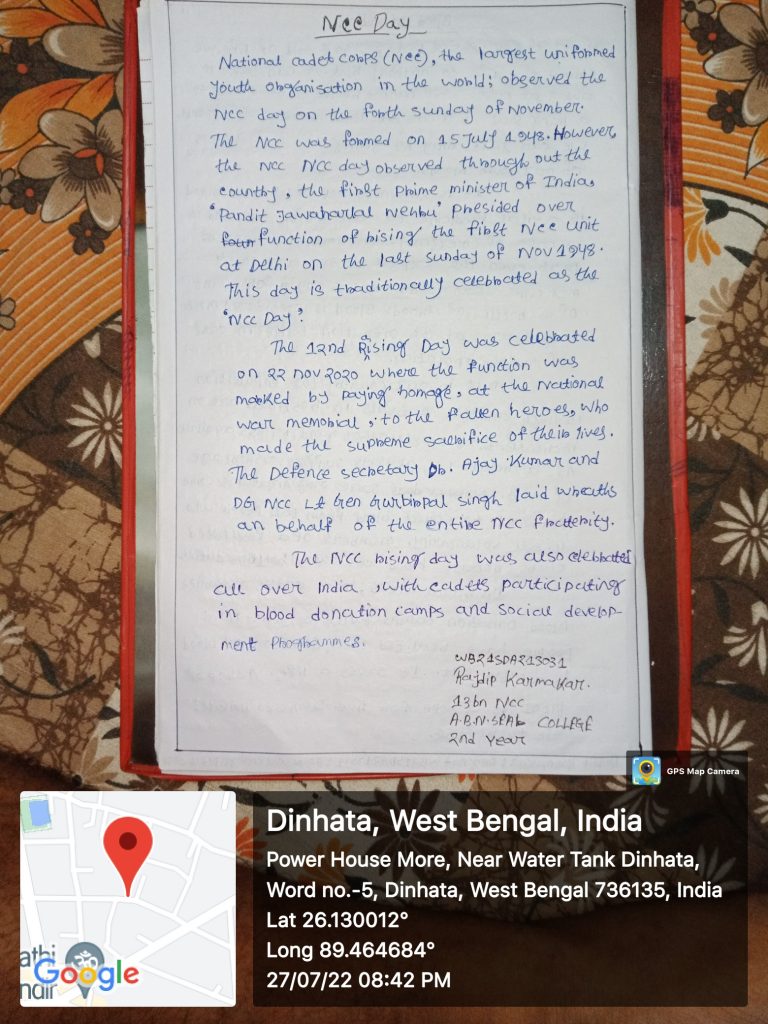 Ncc Day
National cadet corps (Ncc), the largest uniformed
youth organisation in the world; observed the
Ncc day on the forth sunday of November.
The Ncc was formed on 15 July 1948. However,
the Ncc Ncc day observed through out the
country, the first prime minister of India,
'Pandit Jawaharlal Nehru' presided over
function of rising the first Ncc unit
at Delhi on the last sunday of Nov 1948.
This day is traditionally celebrated as the
'Ncc Day'.
The 12nd Raising Day was celebrated
on 22 nov 2020 where the function was
marked by paying homage, at the National
war memorial, to the fallen heroes, who
made the supreme sacrifice of their lives.
The Defence secretary Dr. Ajay Kumar and
DG NCC Lt Gen Gurbirpal singh laid wreaths
an behalf of the entire Ncc fraternity.
The Ncc rising day was also celebrated
all over India, with cadets participating
in blood donation camps and social develop-
ment programmes.
WB21SDA213031
Rajdip Karmakar.
13bn Ncc
A.B.N. SEAL COLLEGE
2nd Year
GPS Map Camera
Dinhata, West Bengal, India
Power House More, Near Water Tank Dinhata,
Word no.-5, Dinhata, West Bengal 736135, India
Lat 26.130012°
Long 89.464684°
27/07/22 08:42 PM
athi
ndir
Google